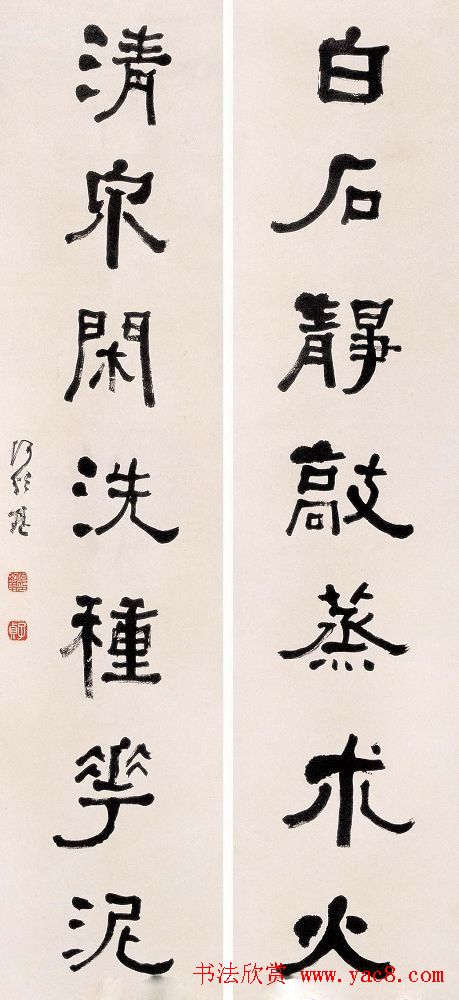 白石靜敲蒸朮火
清泉閑洗種花泥
何紹基
书法欣赏 www.yac8.com